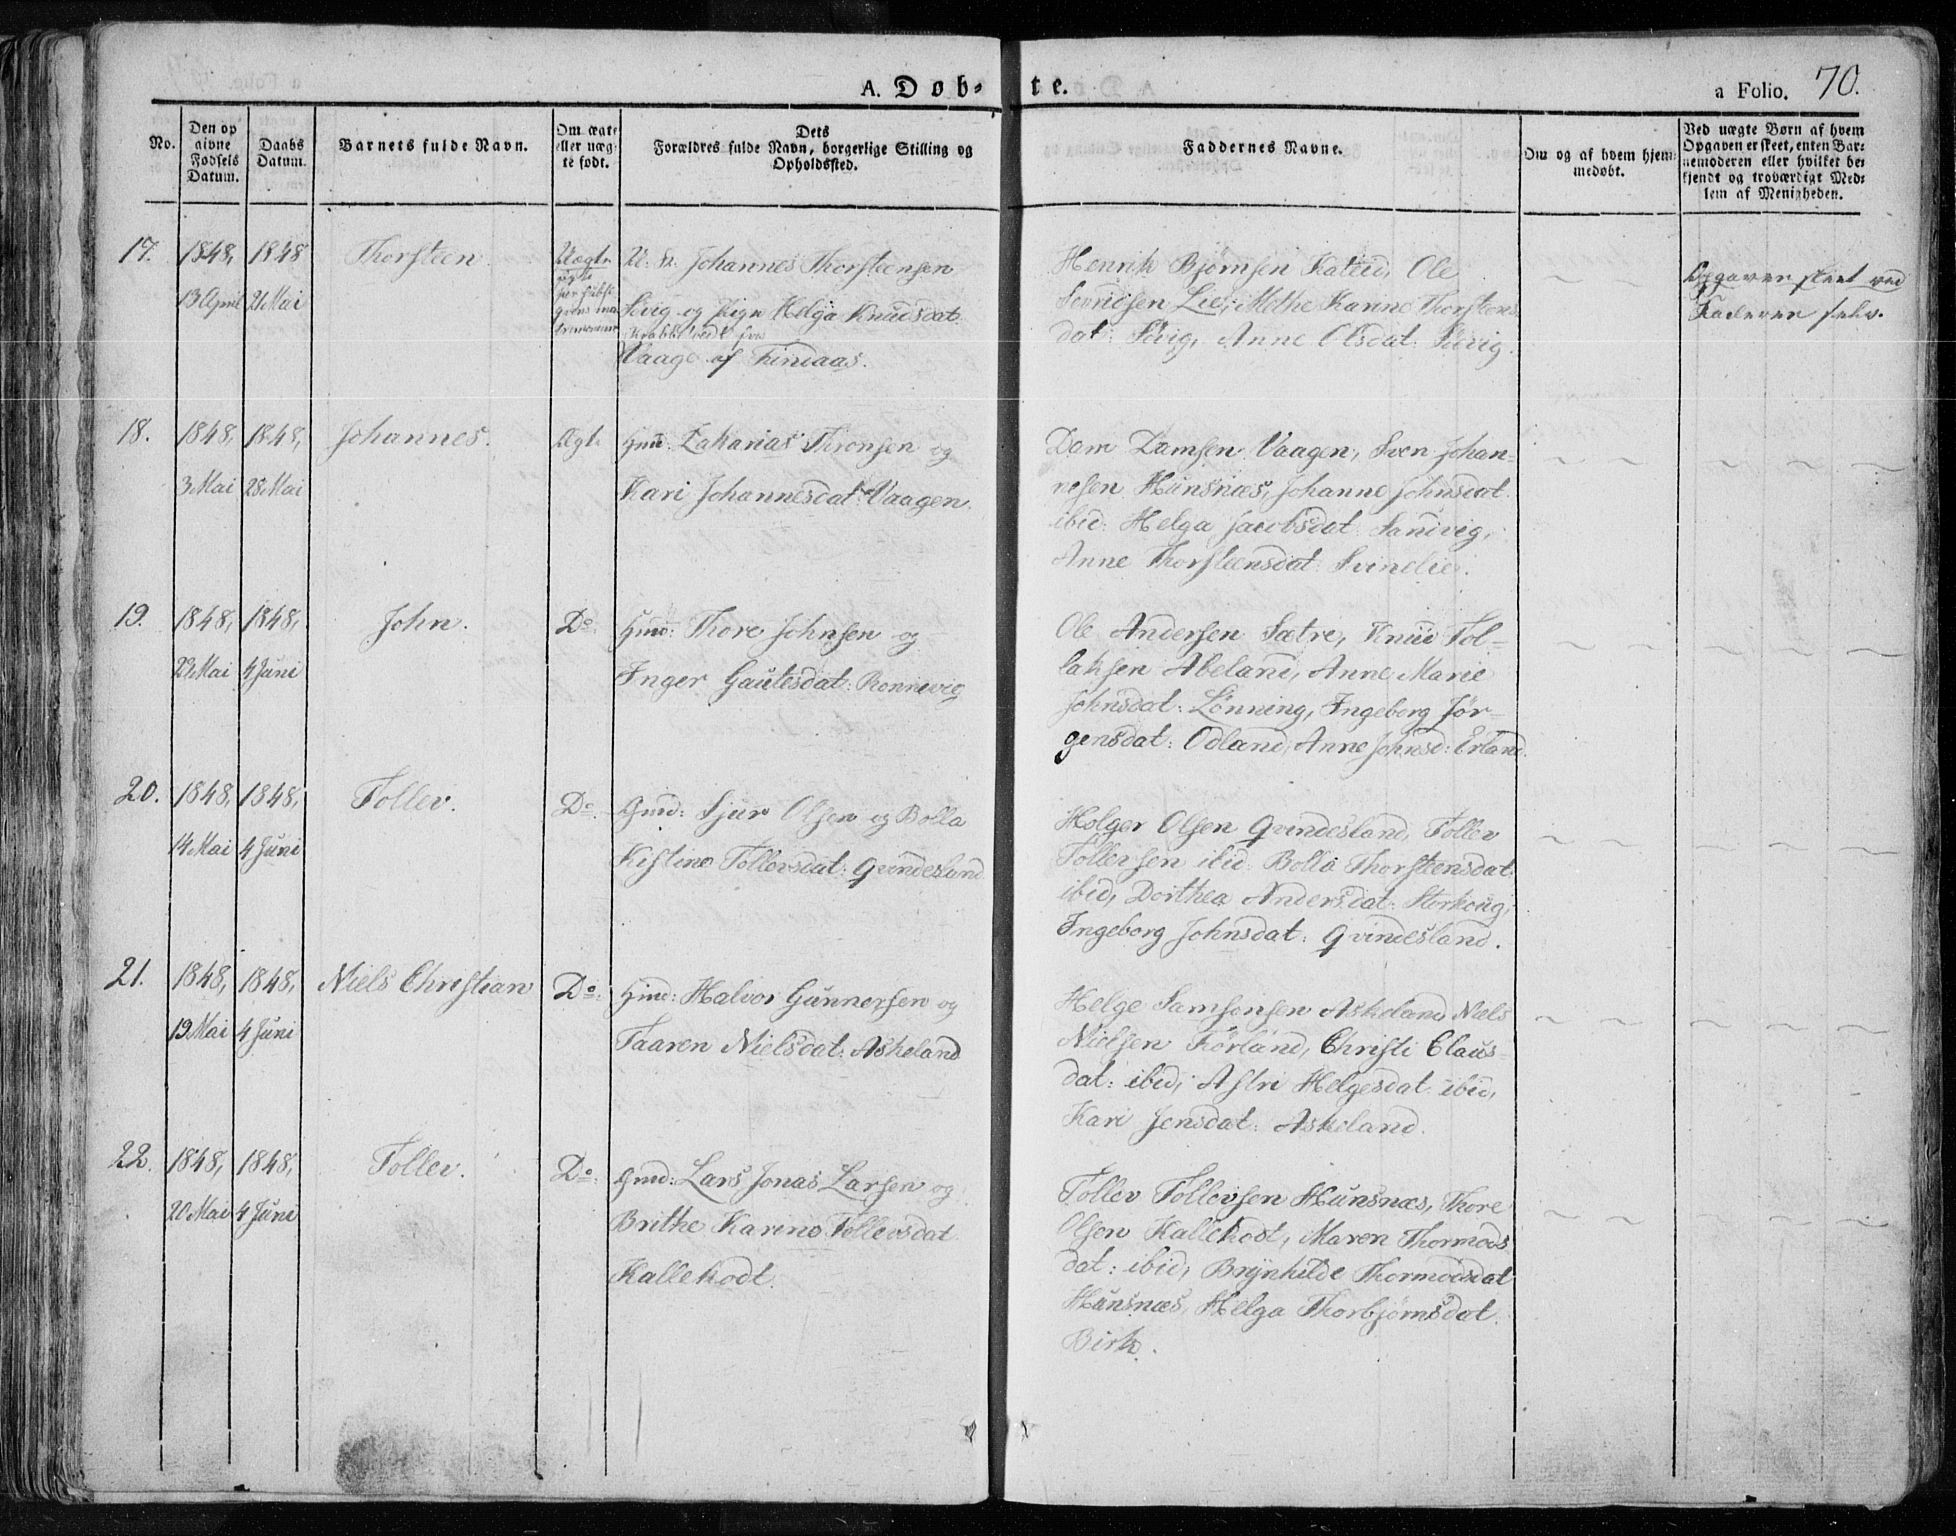 A. Døb- te.
a Folio. 70.
No.
Den op
givne
Fødsels
Datum.
Daabs
Datum.
Barnets fulde Navn.
Om ægte
eller uæg-
te født.
Dets
Forældres fulde Navn, borgerlige Stilling og
Opholdssted.
Faddernes Navne.
Om og af hvem hjem-
medøbt.
Ved uægte Børn af hvem
Opgaven er skeet, enten Bar-
nemoderen eller hvilket be-
kjendt og troværdigt Med-
lem af Menigheden.
17.
1848,
13 April
1848
21 Mai
Thorsteen
Uægte
Johannes Thorsteensen
Søvig og Pige Helga Knudsdat:
Vaage af Findaas.
Henrik Bjørnsen Ole
Sevridsen Lie, Methe Karine Thorsteens
dat: Søvig, Anne Olsdat: Søvig.
Opgaven skeet ved
Faderen selv.
18.
1848,
3 Mai
1848,
28 Mai
Johannes.
Ægte
Gmd. Zakarias Thronsen og
Kari Johannesdat: Vaagen.
Dam Damsen Vaagen, Sven Johan-
nesen Hunsnæs, Johanne Johnsdat.
ibid: Helga Jacobsdat: Sandvig,
Anne Thorsteensdat: Svinelie.
19.
1848,
29 Mai
1848,
4 Juni
John.
Do.
Gmd: Thore Johnsen og
Inger Gautesdat: Ronnevig
Ole Andersen Sætre, Knud Tol-
laksen Abeland, Anne Marie
Johnsdat: Lønning, Ingeborg Jør-
gensdat: Odland, Anne Johnsd: Erland.
20.
1848,
14 Mai
1848,
4 Juni
Tollev.
Do.
Gmd: Sjur Olsen og Bolla
Kistine Tollevsdat: Qvindesland
Holger Olsen Qvindesland, Tollev
Tollevsen ibid: Bolla Thorsteensdat:
ibid, Dorthea Andersdat: Storhoug,
Ingeborg Johnsdat: Qvindesland.
21.
1848,
19 Mai
1848,
4 Juni
Niels Christian
Do:
Gmd: Halvor Gunnersen og
Taaren Nielsdat: Askeland
Helge Samsonsen Askeland Niels
Nielsen Førland, Christi Claus-
dat: ibid, Astri Helgesdat ibid,
Kari Jensdat: Askeland.
22.
1848,
20 Mai
1848,
4 Juni
Tollev.
Do:
Gmd: Lars Jonas Larsen og
Brithe Karine Tollevsdat
Kallekodt.
Tollev Tollevsen Hunsnæs, Thore
Olsen Kallekodt, Maren Thormods
dat: ibid, Brynhilde Thormodsdat
Hunsnæs, Helga Thorbjørnsdat.
Birk.